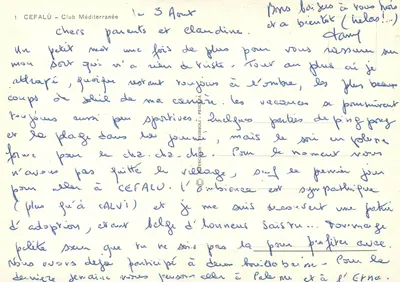 1 CEFALÙ - Club Méditerranée
le 3 Aout
Bons baisers à vous trois
et a bientôt (helas!..)
chers parents et claudine.
Un petit mot une fois de plus pour vous rassurer sur
mon sort qui n'a rien de triste. Tout au plus ai je
attrapé, quoique restant toujours à l'ombre, les plus beaux
coups de soleil de ma carrière. les vacances se poursuivent
toujours aussi peu sportives. Quelques parties de ping pong
et la plage dans la journée, mais le soir en pleine
forme pour le cha-cha-cha. Pour le moment nous
n'avons pas quitté le village, sauf le premier jour
pour aller à CEFALU. l'ambiance est sympathique
(plus qu'à CALVI) et je me suis decouvert une patrie
d'adoption, étant belge d'honneur
petite soeur que tu ne sois pas là pour profiter avec.
Nous avons déjà participé à deux
dernière semaine nous pensons aller à Palerme et à l'Etna.